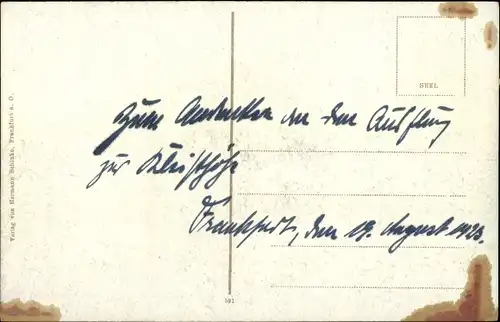 SEEL
Zum Andenken an den Ausflug
zur Kleisthöhe
Frankfurt, den 19. August 1923.
Verlag von Hermann Frankfurt a. O.
591